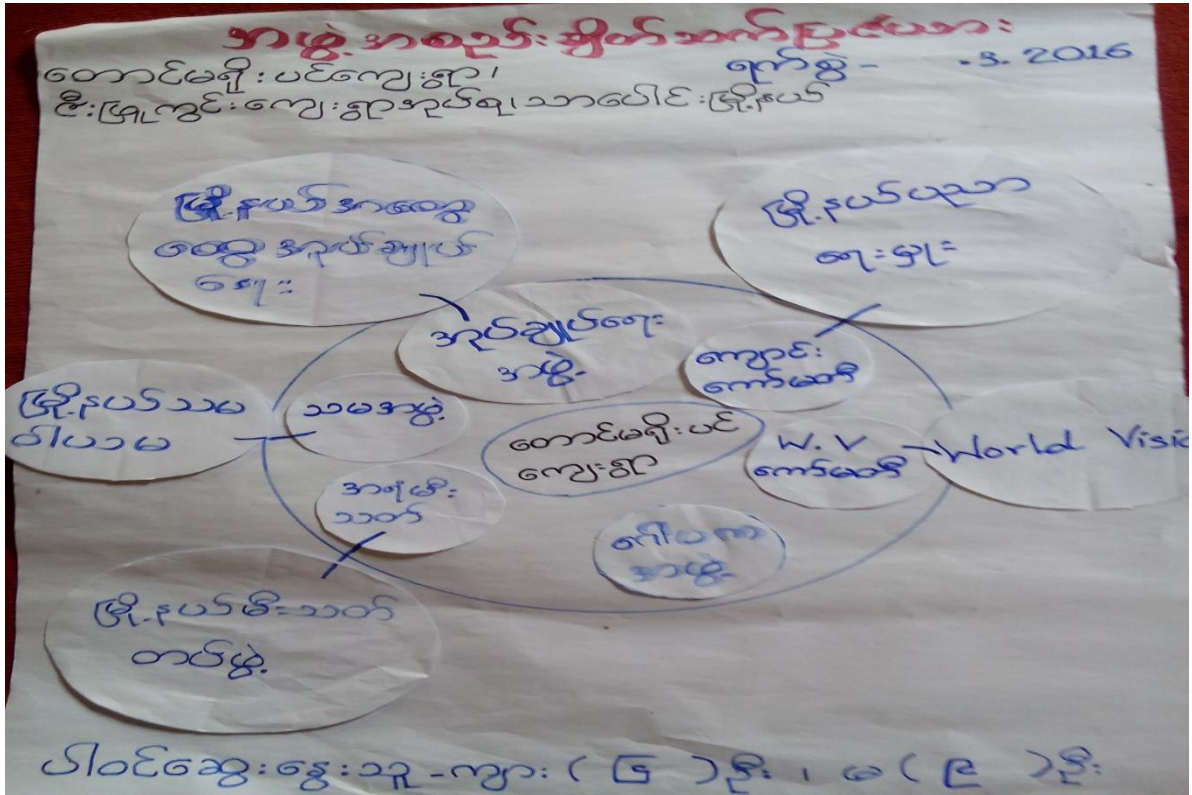 အဖွဲ့အစည်းချိတ်ဆက်ပြဇယား
တောင်မရိုးပင်ကျေးရွာ၊
ဇီးဖြူကွင်းကျေးရွာအုပ်စု၊ သာပေါင်းမြို့နယ်
ရက်စွဲ - .3. 2016
မြို့နယ်အထွေ
ထွေအုပ်ချုပ်
ရေး
မြို့နယ်ပညာ
ရေးမှူး
အုပ်ချုပ်ရေး
အဖွဲ့
ကျောင်း
ကော်မတီ
မြို့နယ်သမ
ဝါယမ
သမအဖွဲ့
တောင်မရိုးပင်
ကျေးရွာ
W.V
ကော်မတီ
World Visio
အရံမီး
သတ်
ဂေါပက
အဖွဲ့
မြို့နယ်မီးသတ်
တပ်ဖွဲ့
ပါဝင်ဆွေးနွေးသူ - ကျား ( ၆ ) ဦး ၊ မ ( ၉ ) ဦး